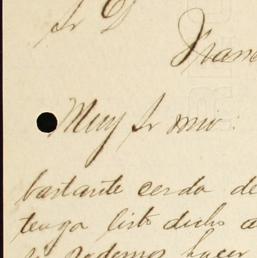 Sr D
Fran
Muy Sr mio:
bastante cerda de
tenga listo dicho a
si podemos hacer